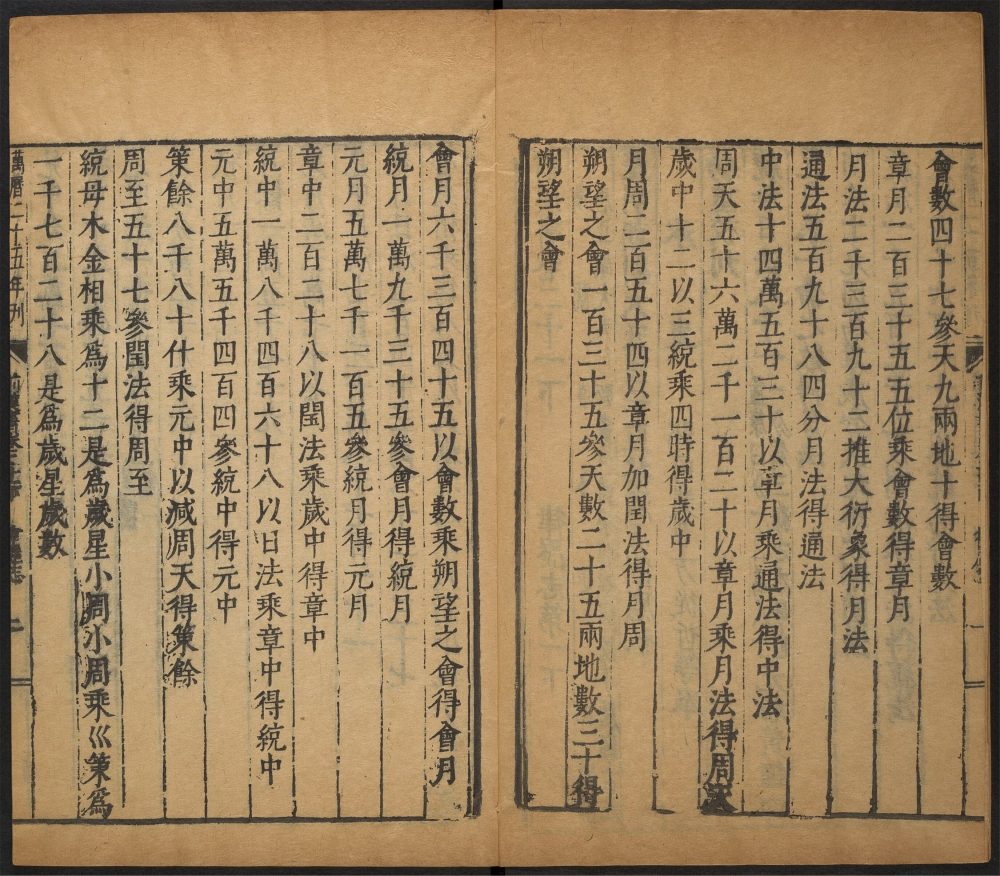 會數四十七參天九兩地十得會數
章月二百三十五五位乘會數得章月
月法二千三百九十二推大衍象得月法
通法五百九十八四分月法得通法
中法十四萬五百三十以章月乘通法得中法
周天五十六萬二千一百二十以章月乘月法得周天
歲中十二以三統乘四時得歲中
月周二百五十四以章月加閏法得月周
朔望之會一百三十五參天數二十五兩地數三十得
朔望之會
會月六千三百四十五以會數乘朔望之會得會月
統月一萬九千三十五參會月得統月
元月五萬七千一百五參統月得元月
章中二百二十八以閏法乘歲中得章中
統中一萬八千四百六十八以日法乘章中得統中
元中五萬五千四百四參統中得元中
策餘八千八十什乘元中以減周天得策餘
周至五十七參閏法得周至
統母木金相乘為十二是為歲星小周小周乘巛策為
一千七百二十八是為歲星歲數
萬曆二十五年刊